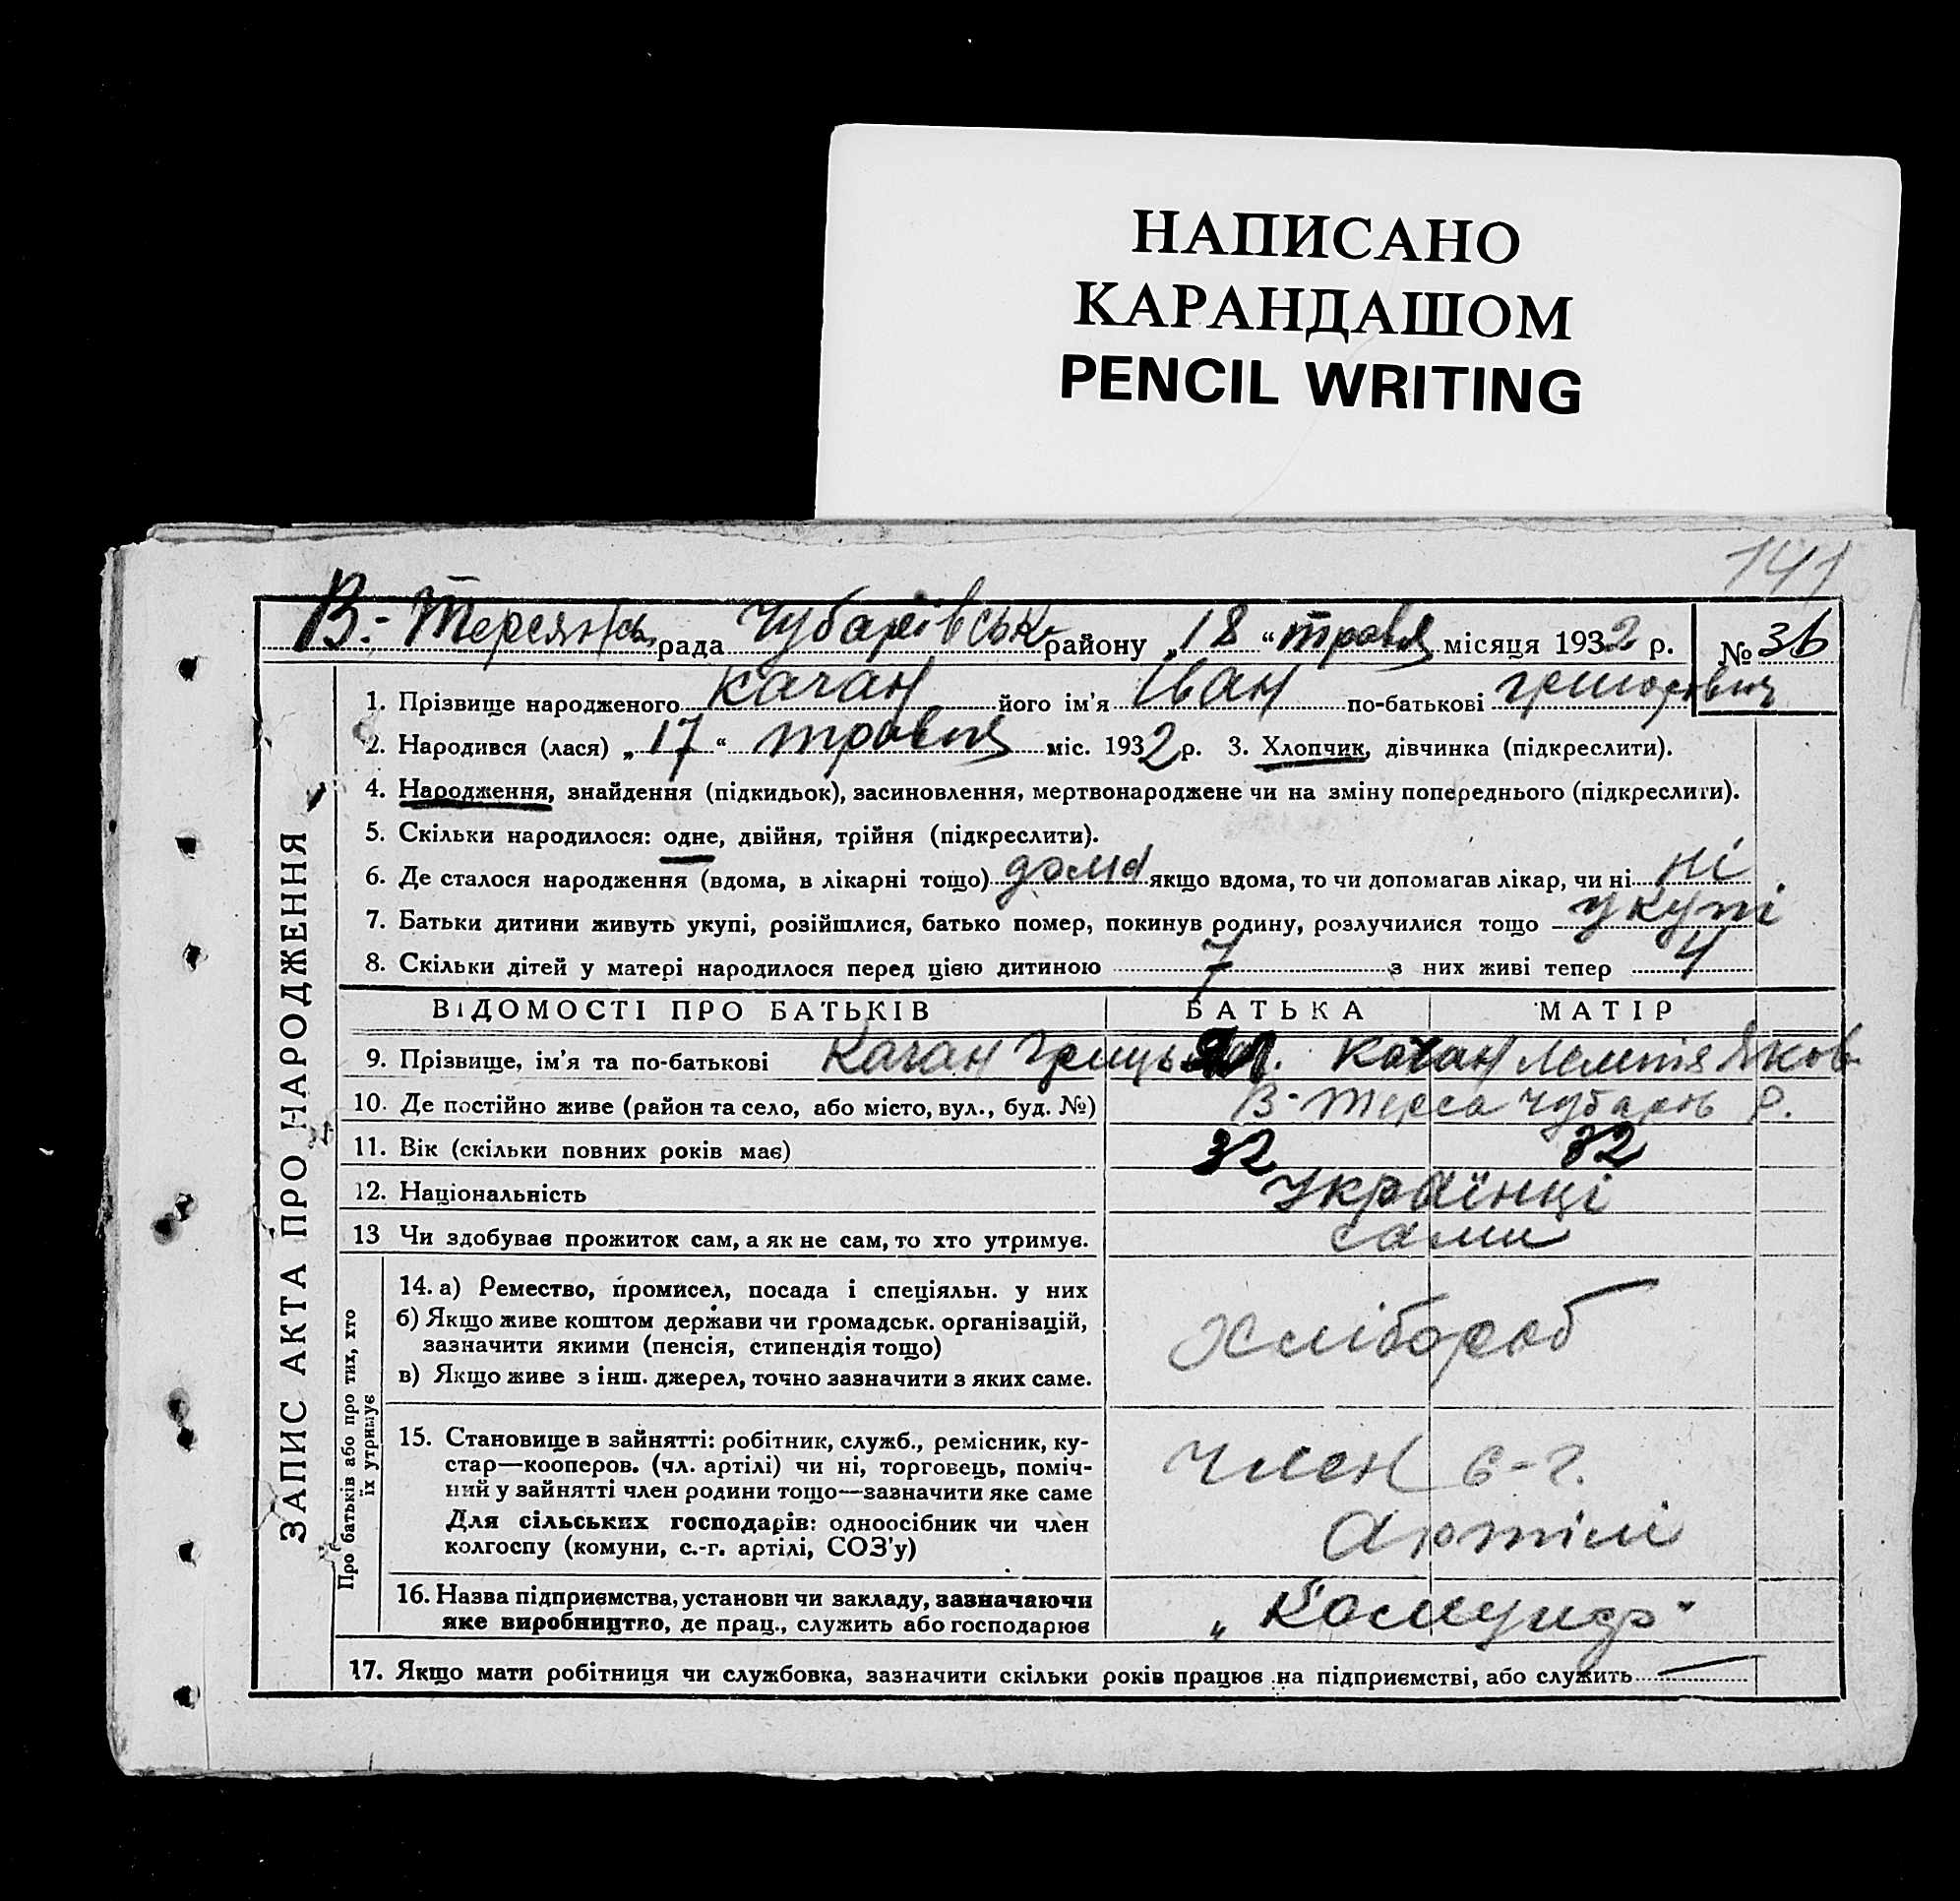 НАПИСАНО
КАРАНДАШОМ
PENCIL WRITING
141
В.-Терсянськ рада Чубарівськ району „18“ травня місяця 1932 р. № 36
1. Прізвище народженого Качан його ім'я Іван по-батькові Григорович
2. Народився (лася) „17“ травня міс. 1932 р. 3. Хлопчик, дівчинка (підкреслити).
4. Народження, знайдення (підкидьок), засиновлення, мертвонароджене чи на зміну попереднього (підкреслити).
5. Скільки народилося: одне, двійня, трійня (підкреслити).
6. Де сталося народження (вдома, в лікарні тощо) дома якщо вдома, то чи допомагав лікар, чи ні ні
7. Батьки дитини живуть укупі, розійшлися, батько помер, покинув родину, розлучилися тощо укупі
8. Скільки дітей у матері народилося перед цією дитиною 7 з них живі тепер 4
ВІДОМОСТІ ПРО БАТЬКІВ БАТЬКА МАТІР
9. Прізвище, ім'я та по-батькові Качан Гриць Качан Яков
10. Де постійно живе (район та село, або місто, вул., буд. №) В-Терса Чубарів р.
11. Вік (скільки повних років має) 32 32
12. Національність Українці
13 Чи здобуває прожиток сам, а як не сам, то хто утримує. сами
14. а) Ремество, промисел, посада і спеціяльн. у них
б) Якщо живе коштом держави чи громадськ. організацій,
зазначити якими (пенсія, стипендія тощо)
в) Якщо живе з інш. джерел, точно зазначити з яких саме.
Хлібороб
15. Становище в зайнятті: робітник, служб., ремісник, ку-
стар—кооперов. (чл. артілі) чи ні, торговець, поміч-
ний у зайнятті член родини тощо—зазначити яке саме
Для сільських господарів: одноосібник чи член
колгоспу (комуни, с.-г. артілі, СОЗ'у)
Член с-г.
Артілі
16. Назва підприємства, установи чи закладу, зазначаючи
яке виробництво, де прац., служить або господарює
17. Якщо мати робітниця чи службовка, зазначити скільки років працює на підприємстві, або служить —
ЗАПИС АКТА ПРО НАРОДЖЕННЯ
Про батьків або про тих, хто
їх утримує